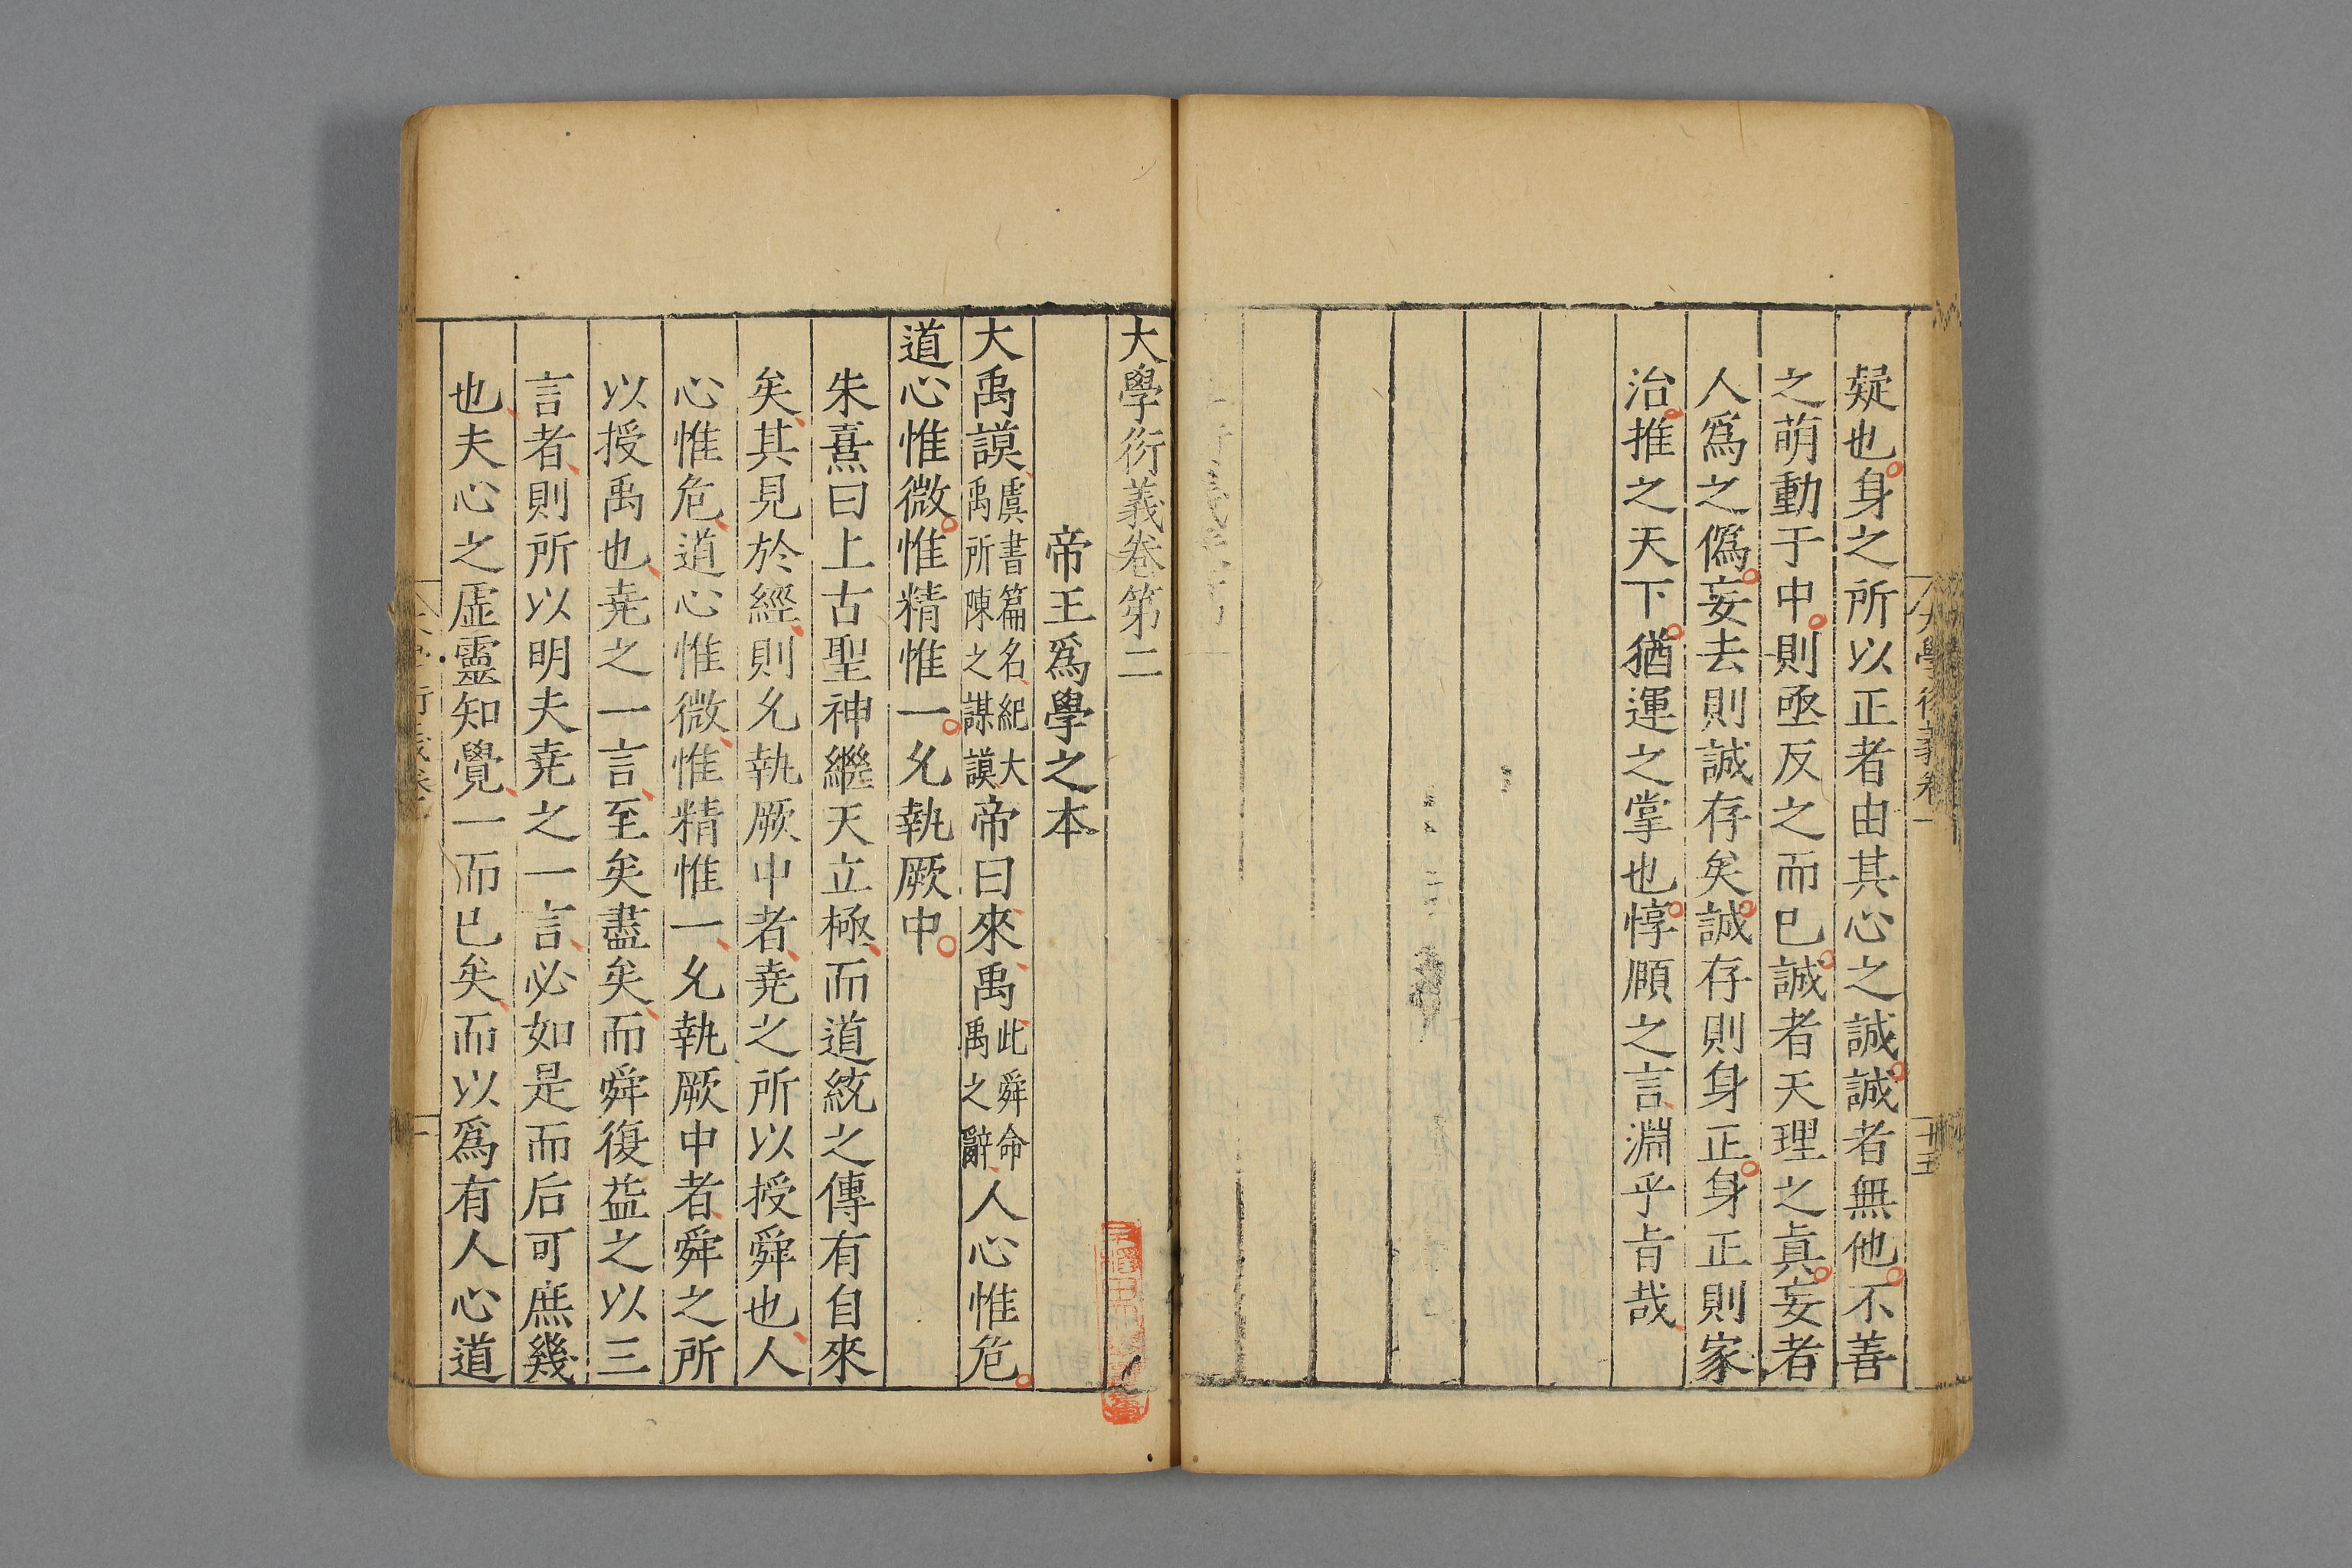 疑也身之所以正者由其心之誠誠者無他不善
之萌動于中則亟反之而已誠者天理之眞妄者
人爲之僞妄去則誠存矣誠存則身正身正則家
治推之天下猶運之掌也惇頤之言淵乎旨哉
大學衍義卷第二
帝王爲學之本
大禹謨虞書篇名紀大禹所陳之謀謨帝曰來禹此舜命禹之辭人心惟危
道心惟微惟精惟一允執厥中
朱熹曰上古聖神繼天立極而道統之傳有自來
矣其見於經則允執厥中者堯之所以授舜也人
心惟危道心惟微惟精惟一允執厥中者舜之所
以授禹也堯之一言至矣盡矣而舜復益之以三
言者則所以明夫堯之一言必如是而后可庶幾
也夫心之虛靈知覺一而已矣而以爲有人心道